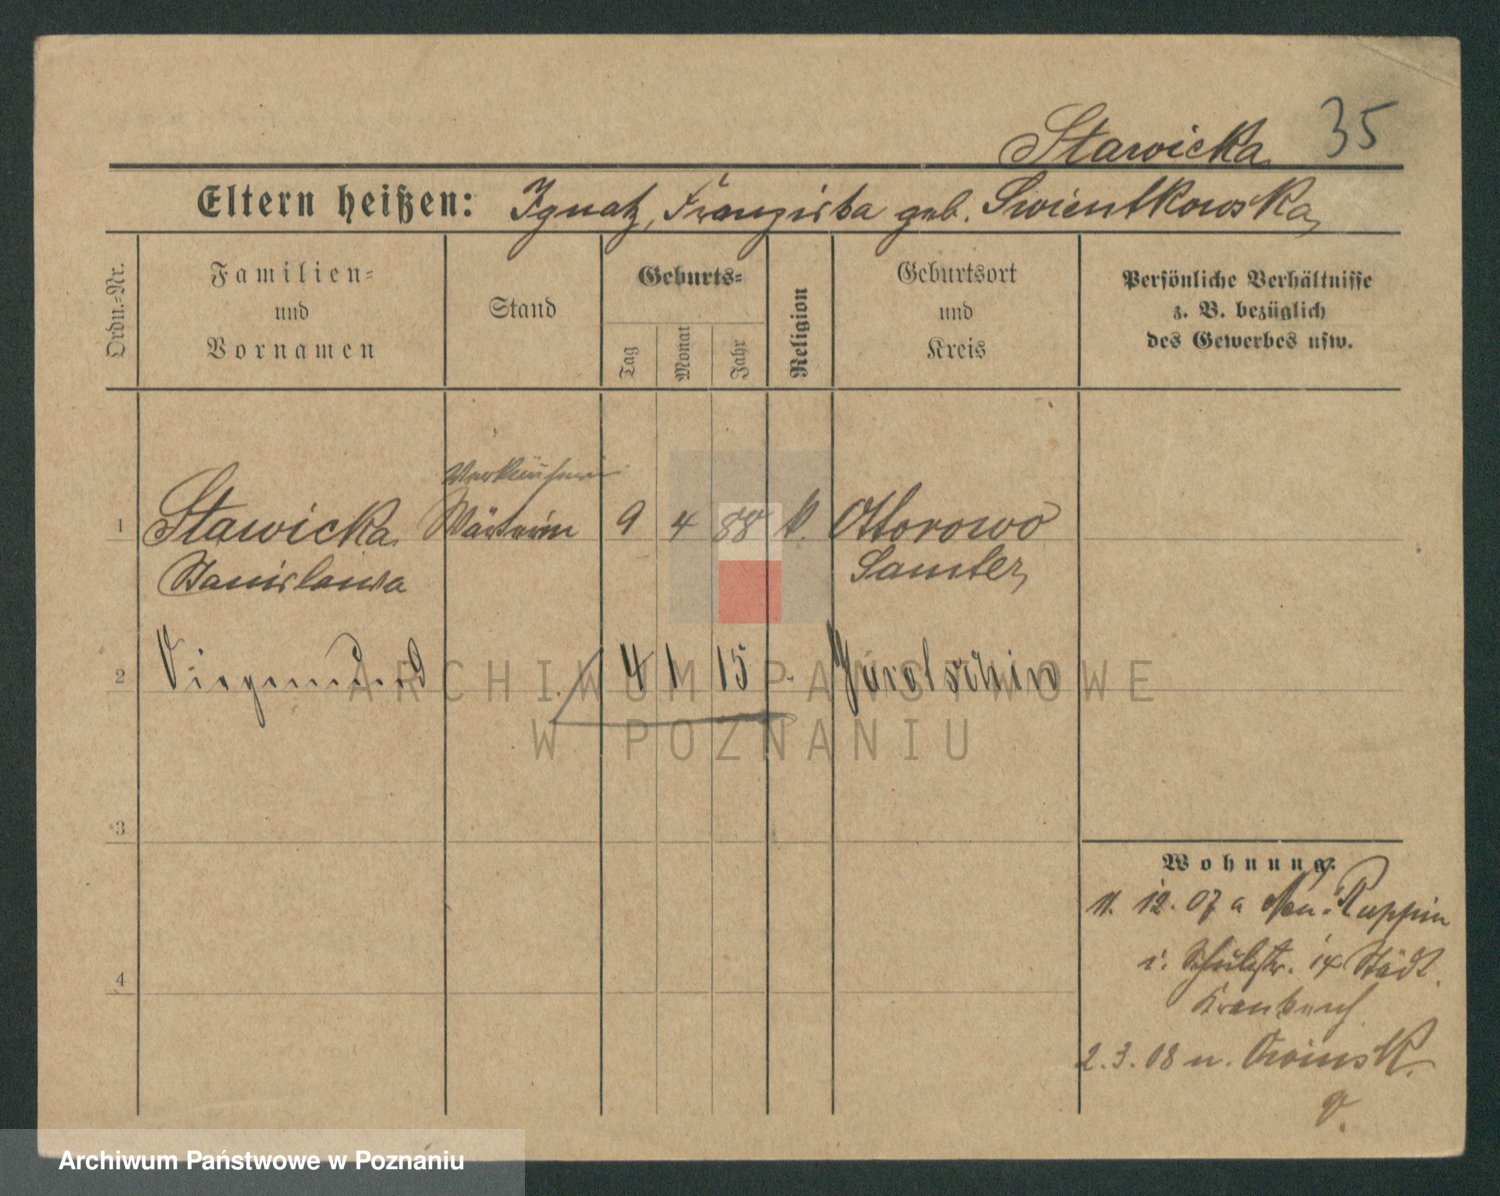 Stawicka 35
Eltern heißen: Ignatz, Franziska geb. Swientkowska
Ordn.-Nr.
Familien-
und
Vornamen
Stand
Geburts-
Tag
Monat
Jahr
Religion
Geburtsort
und
Kreis
Persönliche Verhältnisse
z. B. bezüglich
des Gewerbes usw.
Verkäuferin
1 Stawicka Wärterin 9 4 88 k. Ottorowo
Stanislawa Samter
2 4 1 15 Jarotschin
ARCHIWUM PAŃSTWOWE
W POZNANIU
3
Wohnung:
11. 12. 07 a Neu-Ruppin
i. Schulzstr. 14 Städt.
4
Krankenh.
2. 3. 08 n. Owinsk.
Archiwum Państwowe w Poznaniu